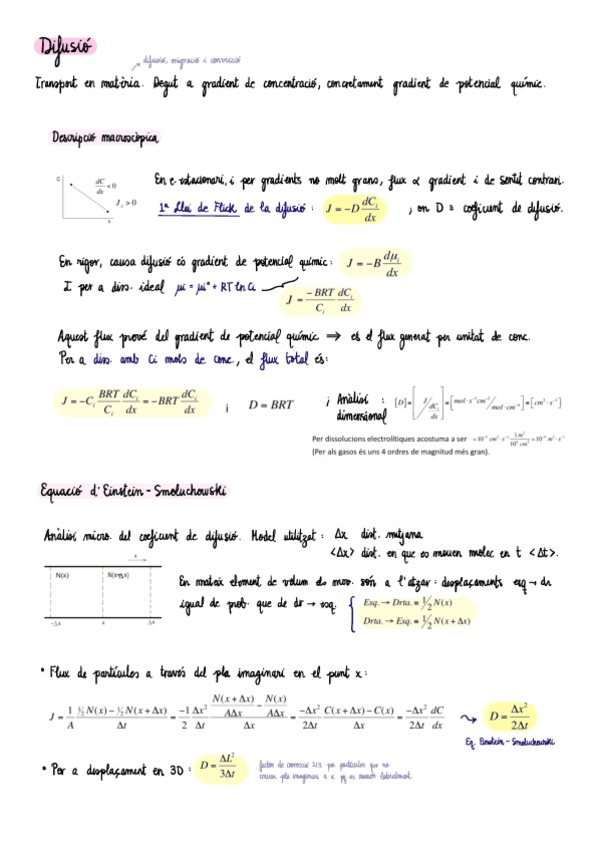 Difusió
difusió, migració i convecció
Transport en matèria. Degut a gradient de concentració, concretament gradient de potencial químic.
Descripció macroscòpica
C
dC/dx < 0
J_x > 0
x
En e. estacionari, i per gradients no molt grans, flux ∝ gradient i de sentit contrari.
1ª Llei de Flick de la difusió : J = −D dC_i/dx ; on D ≡ coeficient de difusió.
En rigor, causa difusió és gradient de potencial químic: J = −B dμ_i/dx
I per a diss. ideal μi = μi° + RT ln Ci
J = −BRT/C_i dC_i/dx
Aquest flux prové del gradient de potencial químic ⟹ és el flux generat per unitat de conc.
Per a diss. amb Ci mols de conc., el flux total és:
J = −C_i BRT/C_i dC_i/dx = −BRT dC_i/dx i D = BRT ; Anàlisi dimensional : [D] = [J/(dC_i/dx)] = [mol·s⁻¹cm⁻²/mol·cm⁻⁴] = [cm²·s⁻¹]
Per dissolucions electrolítiques acostuma a ser ≈10⁻⁵ cm²·s⁻¹ 1m²/10⁴cm² = 10⁻⁹ m²·s⁻¹
(Per als gasos és uns 4 ordres de magnitud més gran).
Equació d'Einstein-Smoluchowski
Anàlisi micro. del coeficient de difusió. Model utilitzat : Δx dist. mitjana
<Δx> dist. en que es mouen molec en t <Δt>.
x
N(x)
-Δx x Δx
En mateix element de volum els mov. són a l'atzar : desplaçaments esq → dr
igual de prob. que de dr → esq.
Esq. → Drta. = 1/2 N(x)
Drta. → Esq. = 1/2 N(x + Δx)
• Flux de partícules a través del pla imaginari en el punt x :
J = 1/A (½N(x) − ½N(x + Δx))/Δt = −1/2 Δx²/Δt (N(x + Δx)/AΔx − N(x)/AΔx)/Δx = −Δx²/2Δt (C(x + Δx) − C(x))/Δx = −Δx²/2Δt dC/dx ⇝ D = Δx²/2Δt
Eq. Einstein-Smoluchowski
• Per a desplaçament en 3D : D = ΔL²/3Δt
factor de correcció 2/3 per partícules que no
creuen pla imaginari a x pq es mouen lateralment.